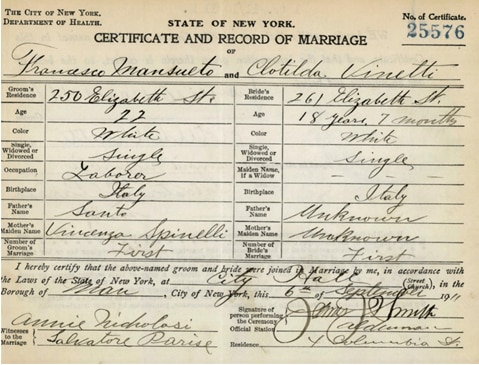 THE CITY OF NEW YORK.
DEPARTMENT OF HEALTH.
STATE OF NEW YORK.
No. of Certificate.
25576
CERTIFICATE AND RECORD OF MARRIAGE
OF
Francesco Mansueto and Clotilda Vinetti
Groom's Residence 250 Elizabeth St. Bride's Residence 261 Elizabeth St.
Age 22 Age 18 years, 7 months
Color White Color White
Single, Widowed or Divorced Single Single, Widowed or Divorced Single
Occupation Laborer Maiden Name, if a Widow
Birthplace Italy Birthplace Italy
Father's Name Santo Father's Name Unknown
Mother's Maiden Name Vincenza Spinelli Mother's Maiden Name Unknown
Number of Groom's Marriage First Number of Bride's Marriage First
I hereby certify that the above-named groom and bride were joined in Marriage by me, in accordance with
the Laws of the State of New York, at City Hall (Street Church), in the
Borough of Man, City of New York, this 6th of September 191
Witnesses to the Marriage
Annie Nicholosi
Salvatore Parise
Signature of person performing the Ceremony Smith
Official Station Alderman
Residence 4 Columbia St.